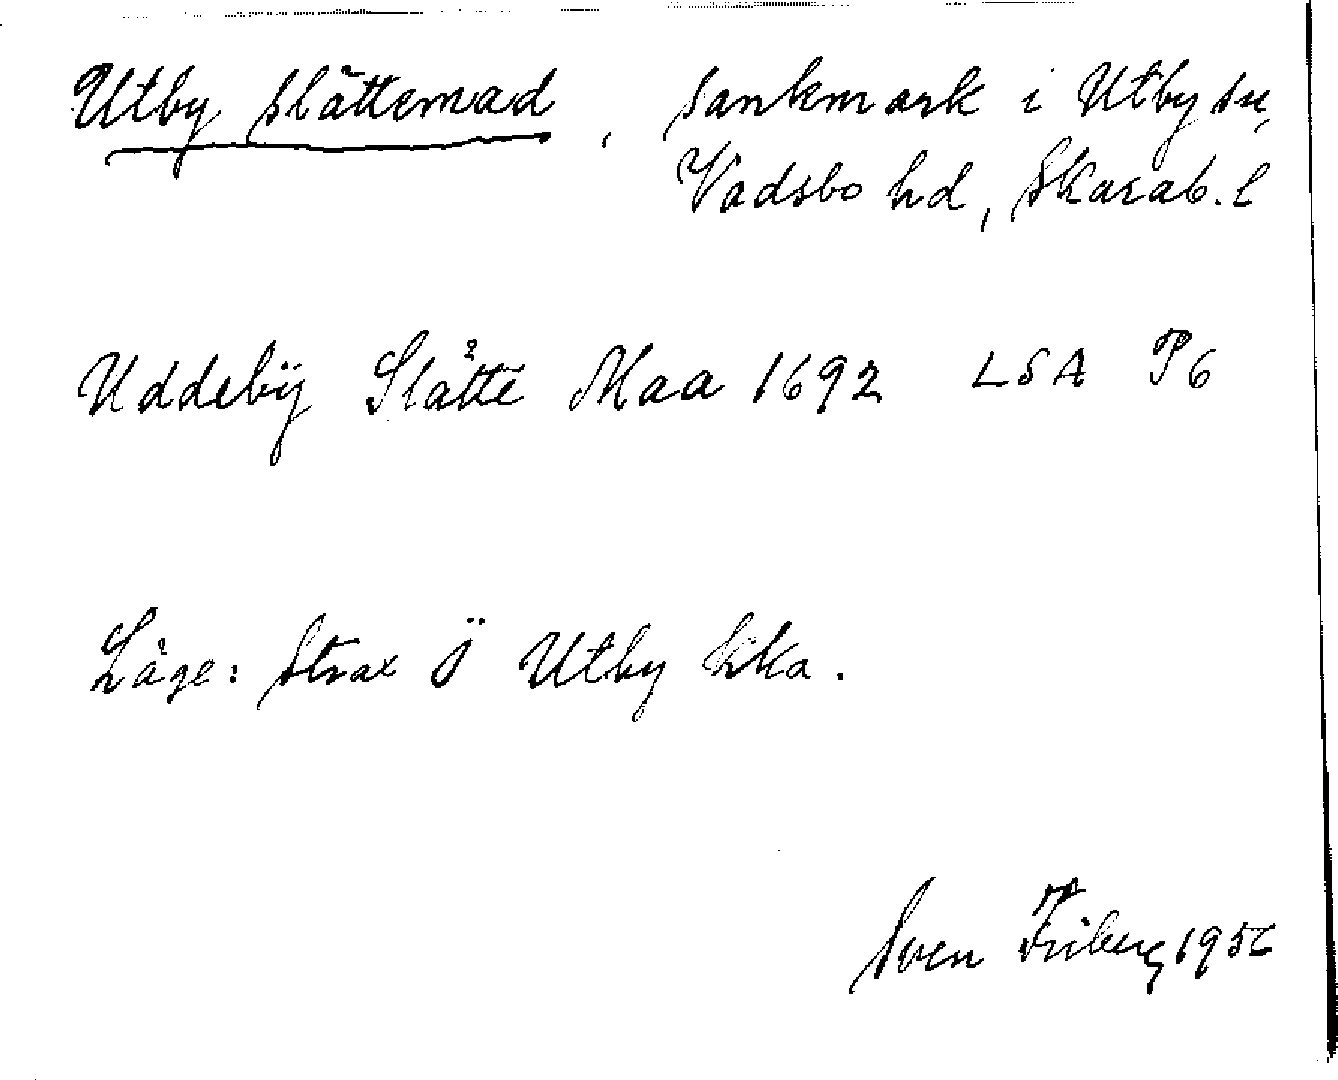 Utby slåttemad, sankmark i Utby sn,
Vadsbo hd, Skarab. l
Uddebÿ Slåtte Maa 1692 LSA P6
Läge: Strax Ö Utby kka.
Sven Friberg 1956